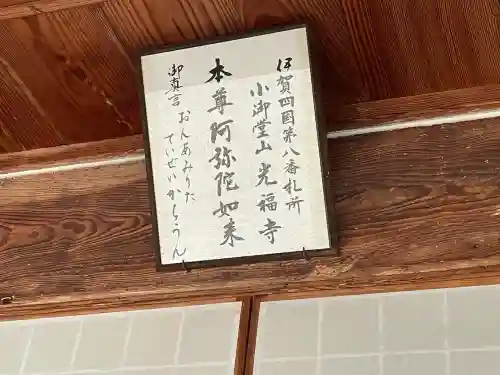 伊賀四国第八番札所
小御堂山 光福寺
本尊阿弥陀如来
御真言 おんあみりた
ていせいからうん